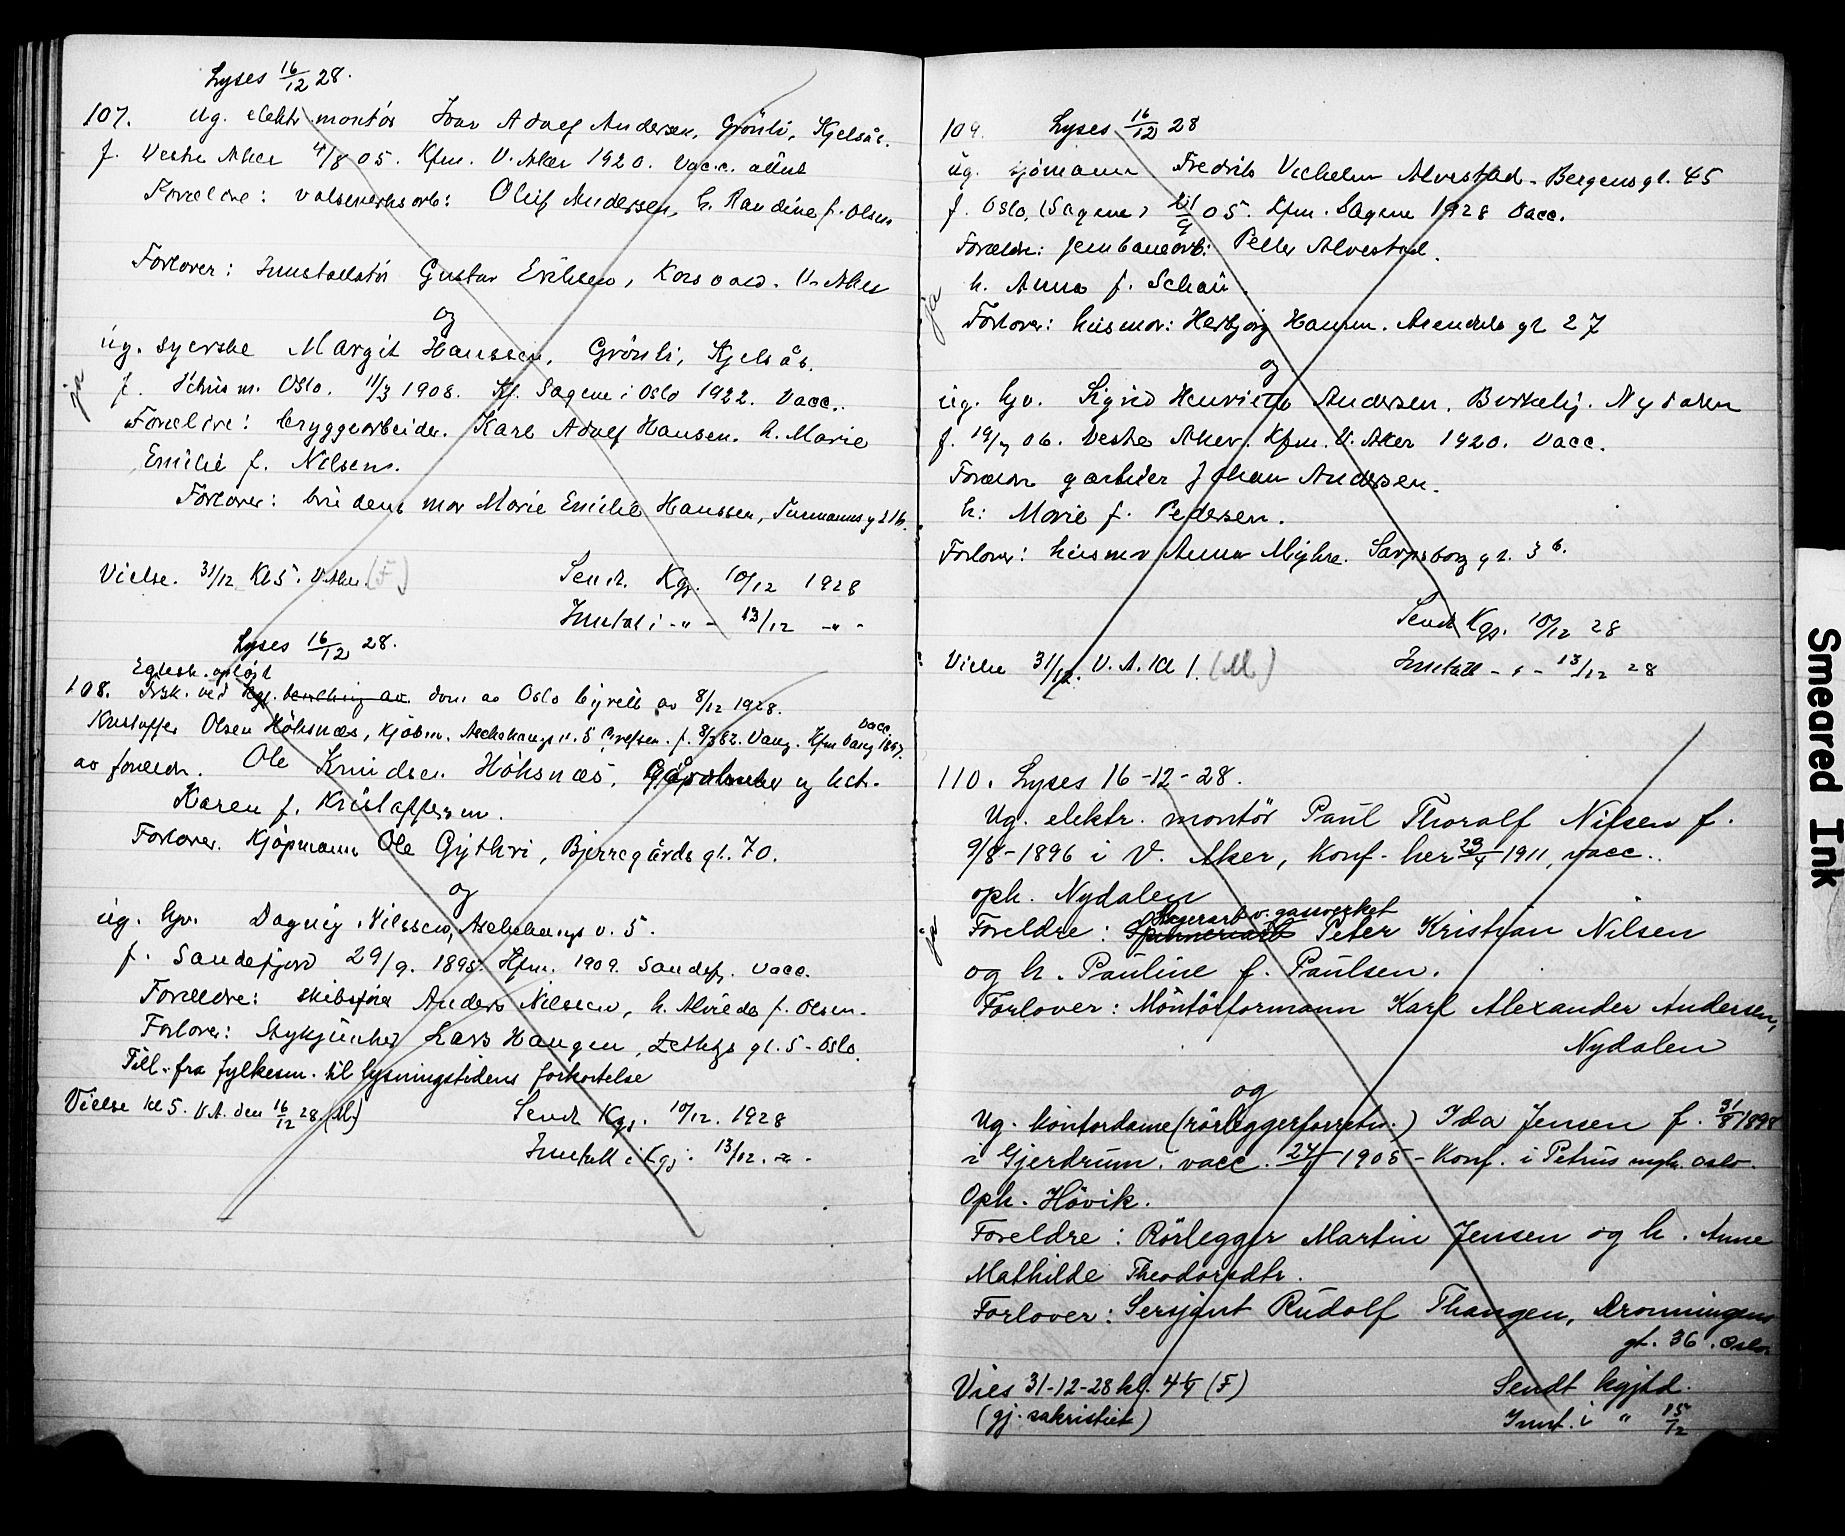 Lyses 16/12 28.
107. Ug. elektr. montör Ivar Adolf Andersen, Grönli, Kjelsås.
f. Vestre Aker 4/8 05. Kfm. V. Aker 1920. Vacc. attest
Foreldre: valseverksarb: Oluf Andersen, h. Randine f. Olsen
Forlover: Installatör Gustav Eriksen, Korsvold. V. Aker
og
ug. syerske Margit Hanssen, Grönli, Kjelsås.
ja
f. Oslo. 11/3 1908. Kf. Sagene i Oslo 1922. Vacc.
Foreldre: bryggearbeider. Karl Adolf Hansen. h. Marie
Emilie f. Nilsen.
Forlover: brudens mor Marie Emilie Hanssen,
Vielse. 31/12 Kl 5. V. Aker. (F)
Sendt Kgj. 10/12 1928
Inntat i -"- 13/12 -"-
Lyses 16/12 28.
Egtesk. opløst
108. Frsk. ved dom av Oslo byrett av 8/12 1928.
Kristoffer Olsen Höhsnæs, Kjöbm. Aschehougs v. 5 Grefsen. f. 8/3 82. Vang. Kfm Vang 1897. Vacc.
av foreldre. Ole Knudsen Höhsnæs, Gårdbruker og hst.
Karen f. Kristoffersen.
Forlover. Kjöpmann Ole Gythri, Bjerregårds gt. 70.
og
ug. hjv. Dagny Nilssen, Aschehougs v. 5.
f. Sandefjord 29/9. 1895. Kfm. 1909. Sandefj. Vacc.
Foreldre: skibsfører Anders Nilssen, h. Alvilde f. Olsen.
Forlover: Stykjunker Lars Haugen, gt. 5 - Oslo.
Till. fra fylkesm. til lysningstidens forkortelse
Vielse kl 5. V.A. den 16/12 28 (M)
Sendt Kgj. 10/12. 1928
Inntatt i Kgj. 13/12. -"-
109. Lyses 16/12 28
ug. sjömann Fredrik Vilhelm Alvestad - Bergensgt. 45
f. Oslo, (Sagene) 05. Kfm. Sagene 1928 Vacc.
Foreldre: jernbanearb: Petter Alvestad.
ja
h. Anna f. Schau.
Forlover: husmor: Herbjörg Hansen. Arendals gt 27
og
ug. hjv. Sigrid Henriette Andersen. Birkelig. Nydalen
f. 19/7 06. Vestre Aker. Kfm. V. Aker 1920. Vacc.
Foreldre gartner Johan Andersen.
h: Marie f. Pedersen.
Forlover: husmor Anna Myhre. Sarpsborg gt. 3 b.
Sendt Kgj. 10/12 28
Vielse 31/12. V. A. Kl 1. (M.)
Inntatt - " - 13/12 28
110. Lyses 16-12-28.
Ug. elektr. montör Paul Thoralf Nilsen f.
9/8-1896 i V. Aker, Konf. her 23/4 1911, vacc..
oph. Nydalen
ja
Lagerarb. v. gassverket
Foreldre: Spinneriarb Peter Kristian Nilsen
og h. Pauline f. Paulsen.
Forlover: Montörformann Karl Alexander Andersen,
Nydalen
og
Ug. kontordame (rörleggerforretn.) Ida Jensen f. 31/8 1898
i Gjerdrum. vacc. 24/ 1905 - Konf. i Petrus mgh. Oslo.
Oph. Hövik.
Foreldre: Rörlegger Martin Jensen og h. Anne
Mathilde Theodorsdtr.
Forlover: Sersjant Rudolf Thangen, Dronningens
gt. 36. Oslo.
Vies 31-12-28 kl. 4 1/4 (F)
Sendt kgjtd.
(gj. sakristiet)
Innt. i " 15/12
Smeared Ink